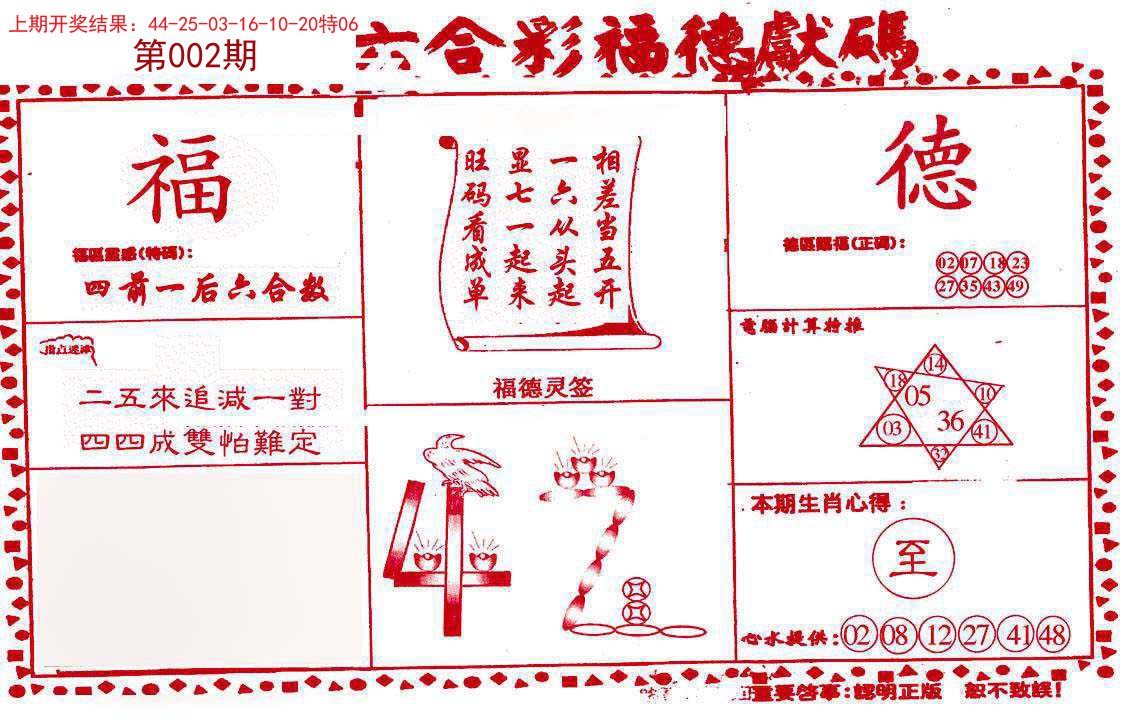 上期开奖结果：44-25-03-16-10-20特06
第002期
六合彩福德獻碼
福
福區靈感(特碼)：
四前一后六合数
指点迷津
二五來追减一對
四四成雙怕難定
相差当五开
一六从头起
显七一起来
旺码看成单
福德灵签
42
德
德區賜福(正碼)：
02 07 18 23
27 35 43 49
電腦計算特推
14
18 10
05
36
03 41
32
本期生肖心得：
至
心水提供：02 08 12 27 41 48
重要啓事：認明正版 恕不致誤！